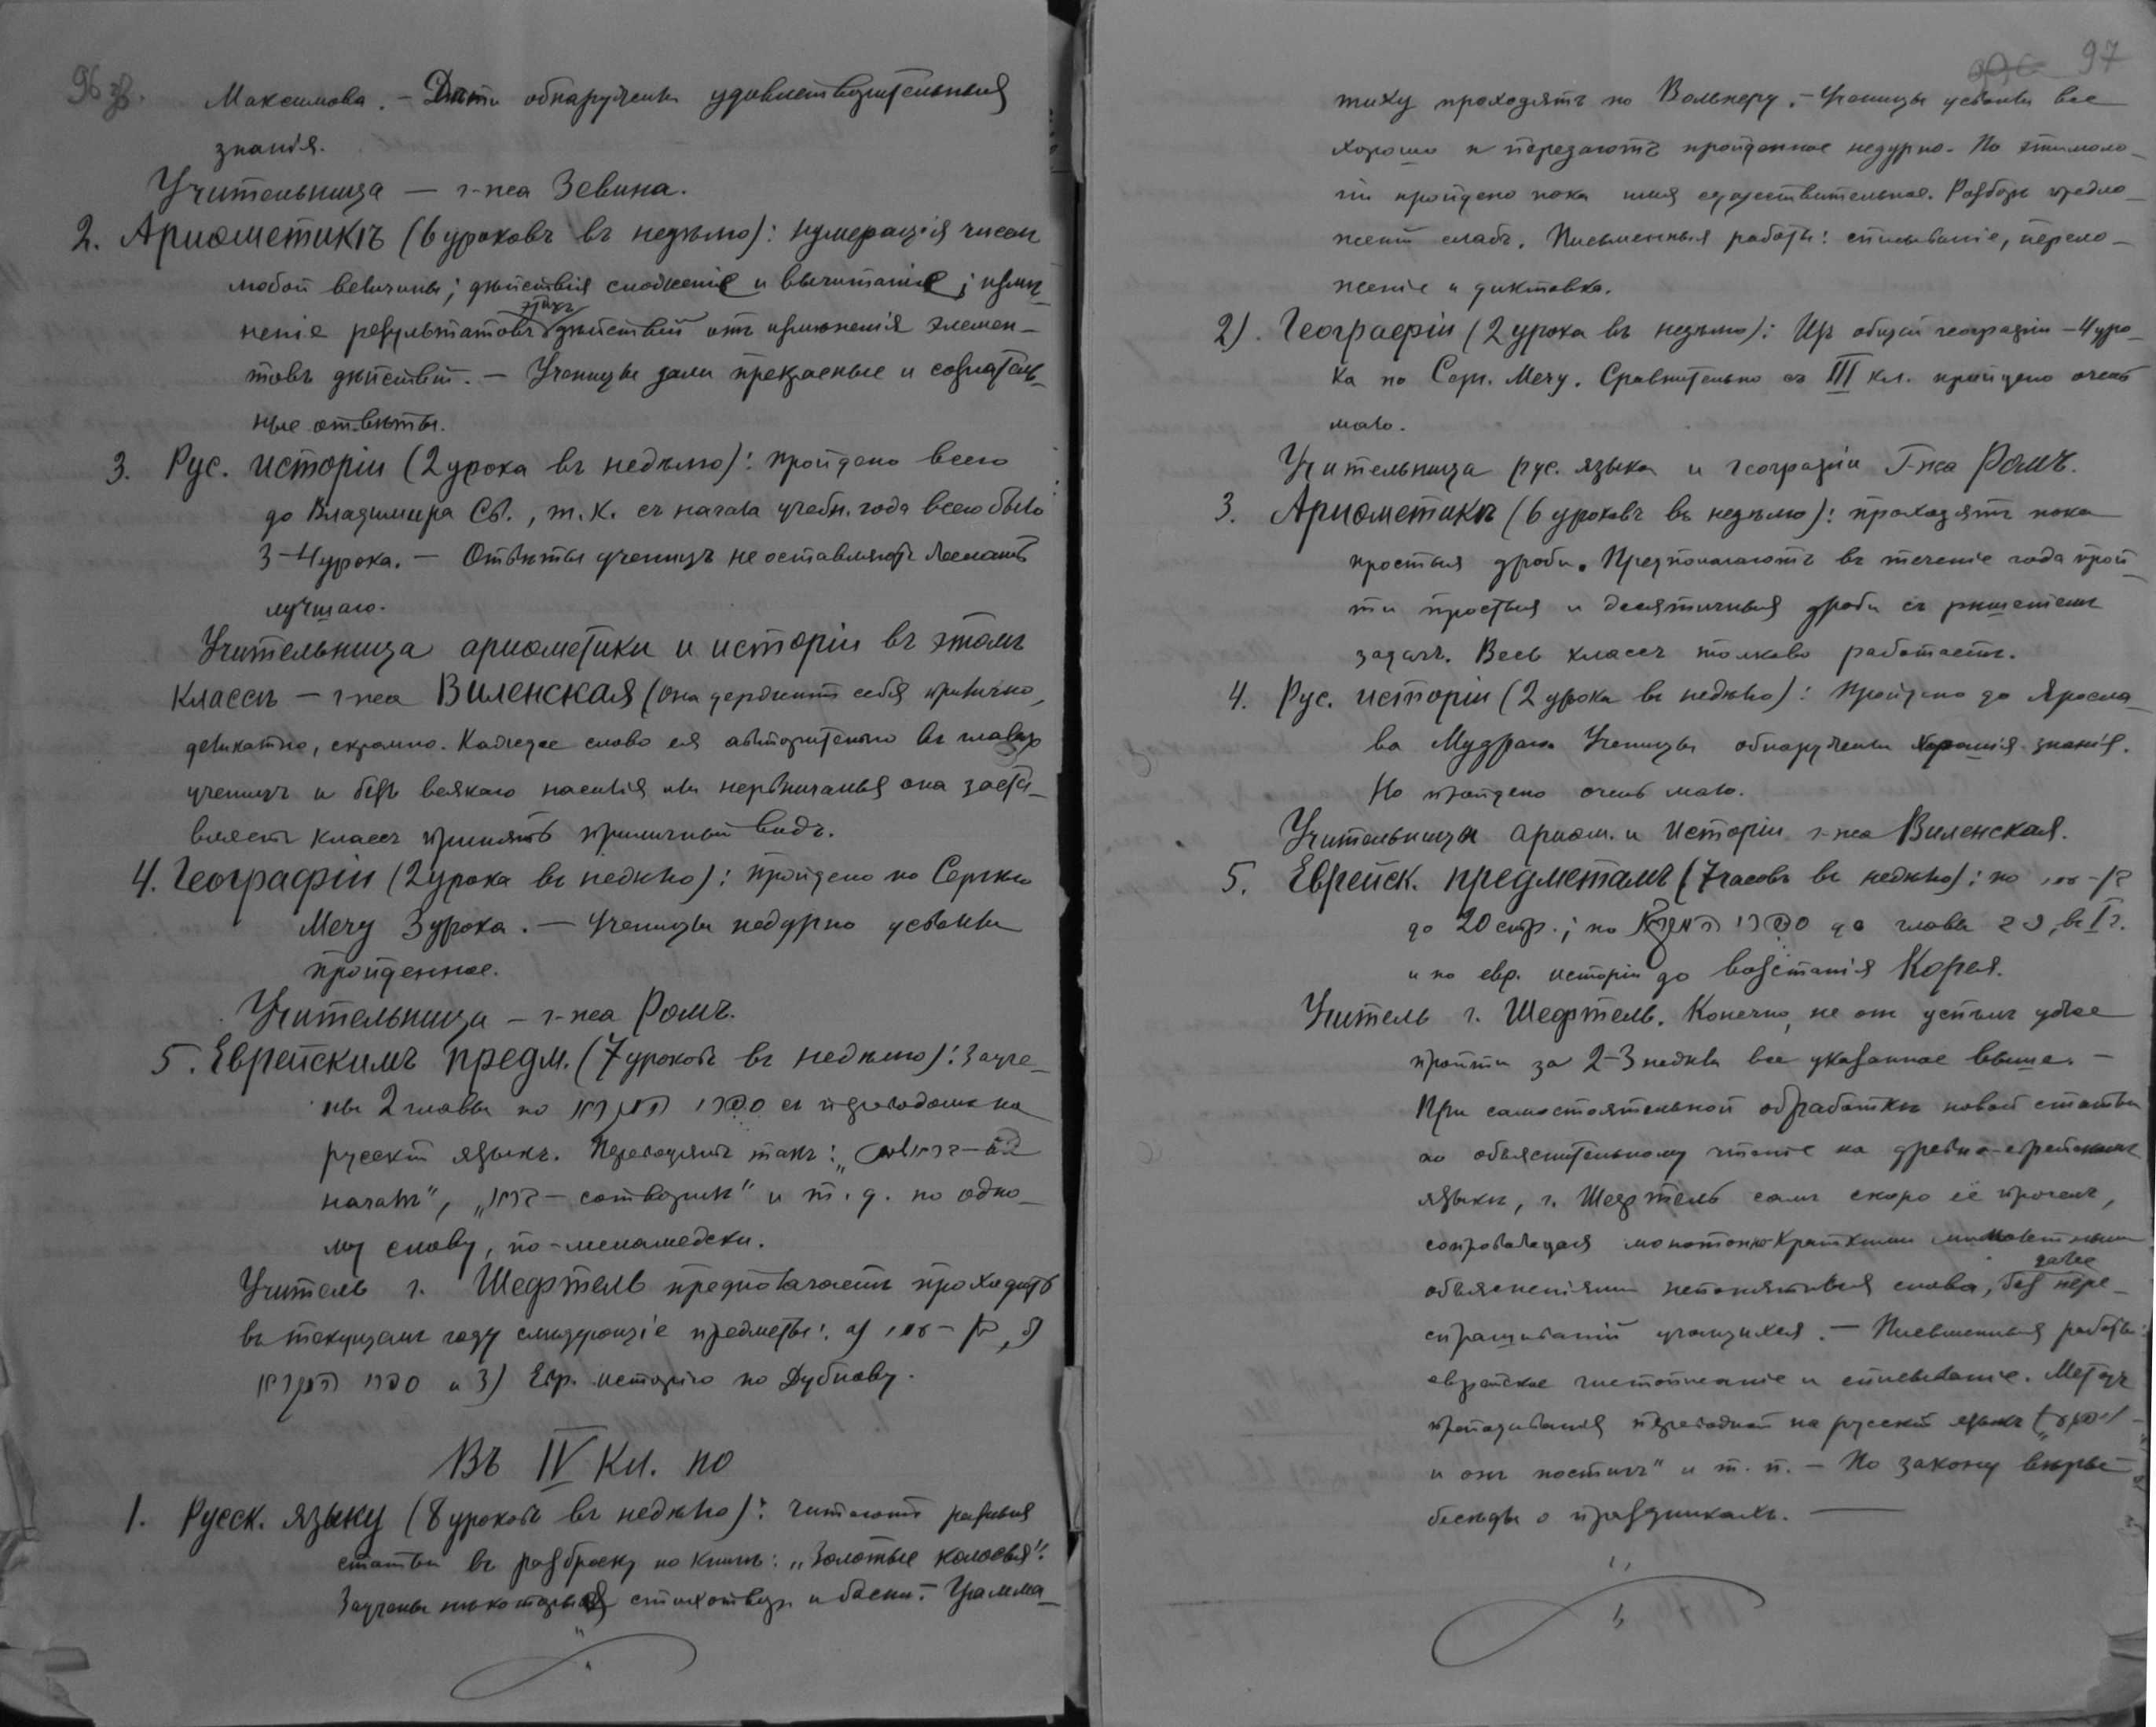 96 об.
Максимова. – Дѣти обнаружили удовлетворительныя
знанія.
Учительница – г-жа Зевина.
2. Ариѳметикѣ (6 уроковъ въ недѣлю): нумерація чиселъ
любой величины; дѣйствія сложенія и вычитанія; измѣ-
этихъ
неніе результатовъ дѣйствій отъ измѣненія элемен-
товъ дѣйствій. – Ученицы дали прекрасные и сознатель-
ные отвѣты.
3. Рус. исторіи (2 урока въ недѣлю): пройдено всего
до Владимира Св., т. к. съ начала учебн. года всего было
3–4 урока. – Отвѣты ученицъ не оставляютъ желать
лучшаго.
Учительница ариѳметики и исторіи въ этомъ
классѣ – г-жа Виленская (она держитъ себя прилично,
деликатно, скромно. Каждое слово ея авторитетно въ глазахъ
ученицъ и безъ всякаго насилія или нервничанья она заста-
вляетъ классъ принять приличный видъ.
4. Географіи (2 урока въ недѣлю): пройдено по Сергѣю
Мечу 3 урока. – Ученицы недурно усвоили
пройденное.
Учительница – г-жа Ромъ.
5. Еврейскимъ предм. (7 уроковъ въ недѣлю): Зауче-
ны 2 главы по ספר הקריאה съ переводомъ на
русскій языкъ. Переводятъ такъ: „בראשית – въ
началѣ", „ברא – сотворилъ" и т. д. по одно-
му слову, по-меламедски.
Учитель г. Шефтель предполагаетъ проходить
въ текущемъ году слѣдующіе предметы: а) б)
ספר הקריאה и 3) Евр. исторію по Дубнову.
Въ IV кл. по
1. Русск. языку (8 уроковъ въ недѣлю): читаютъ разныя
статьи въ разброску по книгѣ: „Золотые колосья".
Заучены нѣкоторыя стихотвор. и басни. – Грамма-
97
тику проходятъ по Вольперу. – Ученицы усвоили все
хорошо и передаютъ пройденное недурно. По этимоло-
гіи пройдено пока имя существительное. Разборъ предло-
женій слабъ. Письменныя работы: списываніе, перело-
женіе и диктовка.
2). Географіи (2 урока въ недѣлю): Изъ общей географіи – 4 уро-
ка по Серг. Мечу. Сравнительно съ III кл. пройдено очень
мало.
Учительница рус. языка и географіи Г-жа Ромъ.
3. Ариѳметикѣ (6 уроковъ въ недѣлю): проходятъ пока
простыя дроби. Предполагаютъ въ теченіе года прой-
ти простыя и десятичныя дроби съ рѣшеніемъ
задачъ. Весь классъ толково работаетъ.
4. Рус. исторіи (2 урока въ недѣлю): Пройдено до Яросла-
ва Мудраго. Ученицы обнаружили хорошія знанія.
Но пройдено очень мало.
Учительница ариѳм. и исторіи г-жа Виленская.
5. Еврейск. предметамъ (7 часовъ въ недѣлю): по
до 20 стр.; по ספר הקריאה до главы въ I ч.
и по евр. исторіи до возстанія Корея.
Учитель г. Шефтель. Конечно, не онъ успѣлъ уже
пройти за 2–3 недѣли все указанное выше. –
При самостоятельной обработкѣ новой статьи
по объяснительному чтенію на древне-еврейскомъ
языкѣ, г. Шефтель самъ скоро её прочелъ,
сопровождая монотонно-краткими
объясненіями непонятныя слова, безъ далее пере-
спрашиваній учащихся. – Письменныя работы:
еврейское чистописаніе и списываніе. Методъ
преподаванія переводный на русскій языкъ
и онъ постилъ" и т. п. – По закону вѣры –
бесѣды о праздникахъ. –